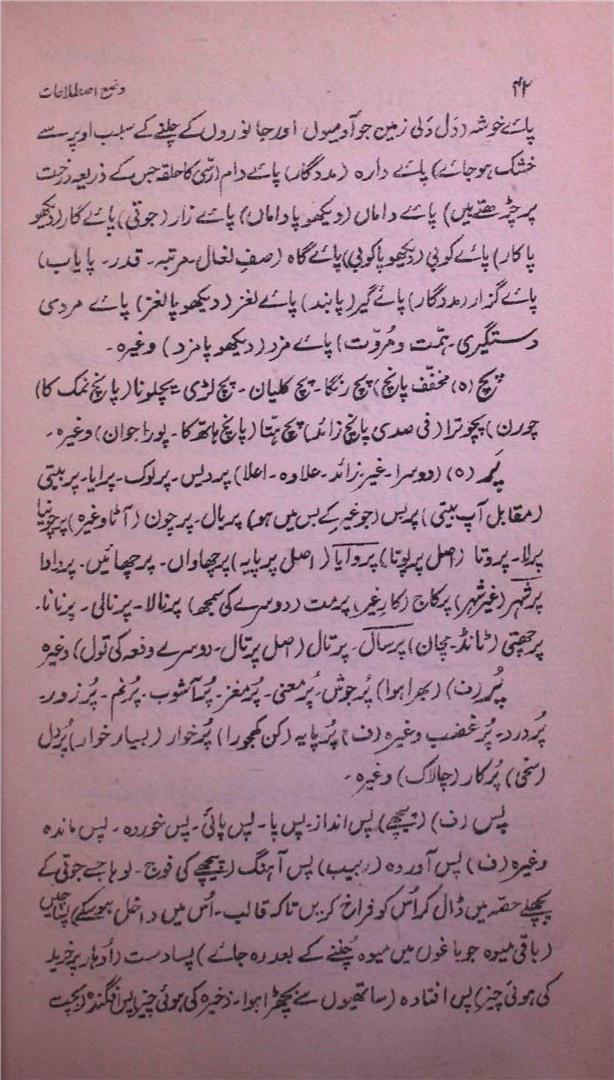 ۴۲ وضع اصطلاحات
پائے خوشہ (دَل دَلی زمین جو آدمیوں اور جانوروں کے چلنے کے سبب اوپر سے
خشک ہوجائے) پائے دارہ (مددگار) پائے دام (رسّی کا حلقہ جس کے ذریعہ درخت
پر چڑھتے ہیں) پائے داماں (دیکھو پاداماں) پائے زار (جوتی) پائے گار (دیکھو
پاکار) پائے کوبی (دیکھو پاکوبی) پائے گاہ (صفِ لغال۔ مرتبہ۔ قدر۔ پایاب)
پائے گزار (مددگار) پائے گیر (پابند) پائے لغز (دیکھو پالغز) پائے مردی
دستگیری۔ ہمّت و مُروّت) پائے مزد (دیکھو پامزد) وغیرہ۔
پچ (ہ) مخفّف پانچ) پچ رنگا۔ پچ کلیان۔ پچ لڑی پچلونا (پانچ نمک کا)
چورن) پچوترا (فی صدی پانچ زائد) پچ ہتّا (پانچ ہاتھ کا۔ پورا جوان) وغیرہ۔
پَر (ہ) (دوسرا۔ غیر۔ زائد۔ علاوہ۔ اعلا) پردیس۔ پرلوک۔ پرایا۔ پربیتی
(مقابل آپ بیتی) پربس (جو غیر کے بس میں ہو) پریال۔ پرچون (آٹا وغیرہ) پرچونیا
پرلا۔ پروتا (اصل پرپوتا) پروآیا (اصل پرپایہ) پرچھاواں۔ پرچھائیں۔ پردادا
پرشہر (غیر شہر) پرکاج (کارِ غیر) پرمت (دوسرے کی سمجھ) پرنالا۔ پرنالی۔ پرنانا۔
پرچھتی (ٹانڈ۔ مچان) پرسال۔ پرتال (اصل پرتال۔ دوسرے دفعہ کی تول) وغیرہ
پُر (ف) (بھرا ہوا) پُرجوش۔ پُرمعنی۔ پُرمغز۔ پُرآشوب۔ پُرنم۔ پُرزور۔
پُردرد۔ پُرغضب وغیرہ (ف) پُرپایہ (کن کھجورا) پُرخوار (بسیار خوار) پُردل
(سخی) پُرکار (چالاک) وغیرہ۔
پس (ف) (پیچھے) پس انداز۔ پس پا۔ پس پائی۔ پس خوردہ۔ پس ماندہ
وغیرہ (ف) پس آوردہ (ربیب) پس آہنگ (پیچھے کی فوج۔ لوہا جسے جوتی کے
پچھلے حصّہ میں ڈال کر اُس کو فراخ کریں تاکہ قالب۔ اُس میں داخل ہوسکے) پساچیں
(باقی میوہ جو باغوں میں میوہ چُننے کے بعد رہ جائے) پسادست (اُدہار پر خرید
کی ہوئی چیز) پس افتادہ (ساتھیوں سے بچھڑا ہوا۔ ذخیرہ کی ہوئی چیز) پس افگندہ (بچت